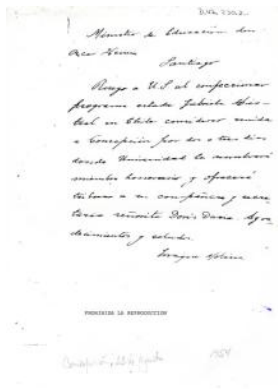 Ministro de Educación don
Santiago
Ruego a U.S. al confeccionar
programa estada Gabriela Mis-
tral en Chile considerar venida
a Concepción por dos o tres días
donde Universidad la nombrará
miembro honorario y ofrecerá
tribuna a su compañera y secre-
taria señorita Doris Dana. Agra-
decimientos y saludos.
Enrique Molina
PROHIBIDA LA REPRODUCCION
Concepción, de Agosto
1954